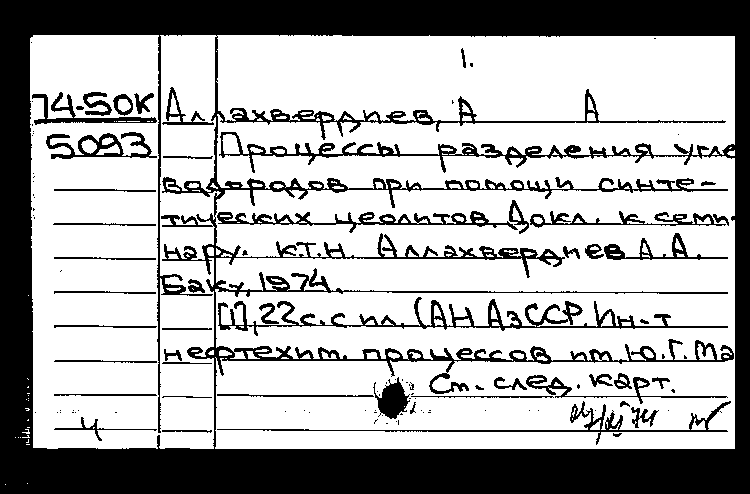 1.
74-50к Аллахвердиев, А А
5093 Процессы разделения угле
водородов при помощи синте-
тических цеолитов. Докл. к семи-
нару. к.т.н. Аллахвердиев А.А.
Баку, 1974.
[1], 22с. с ил. (АН АзССР. Ин-т
нефтехим. процессов им. Ю.Г. Ма
См. след. карт.
4